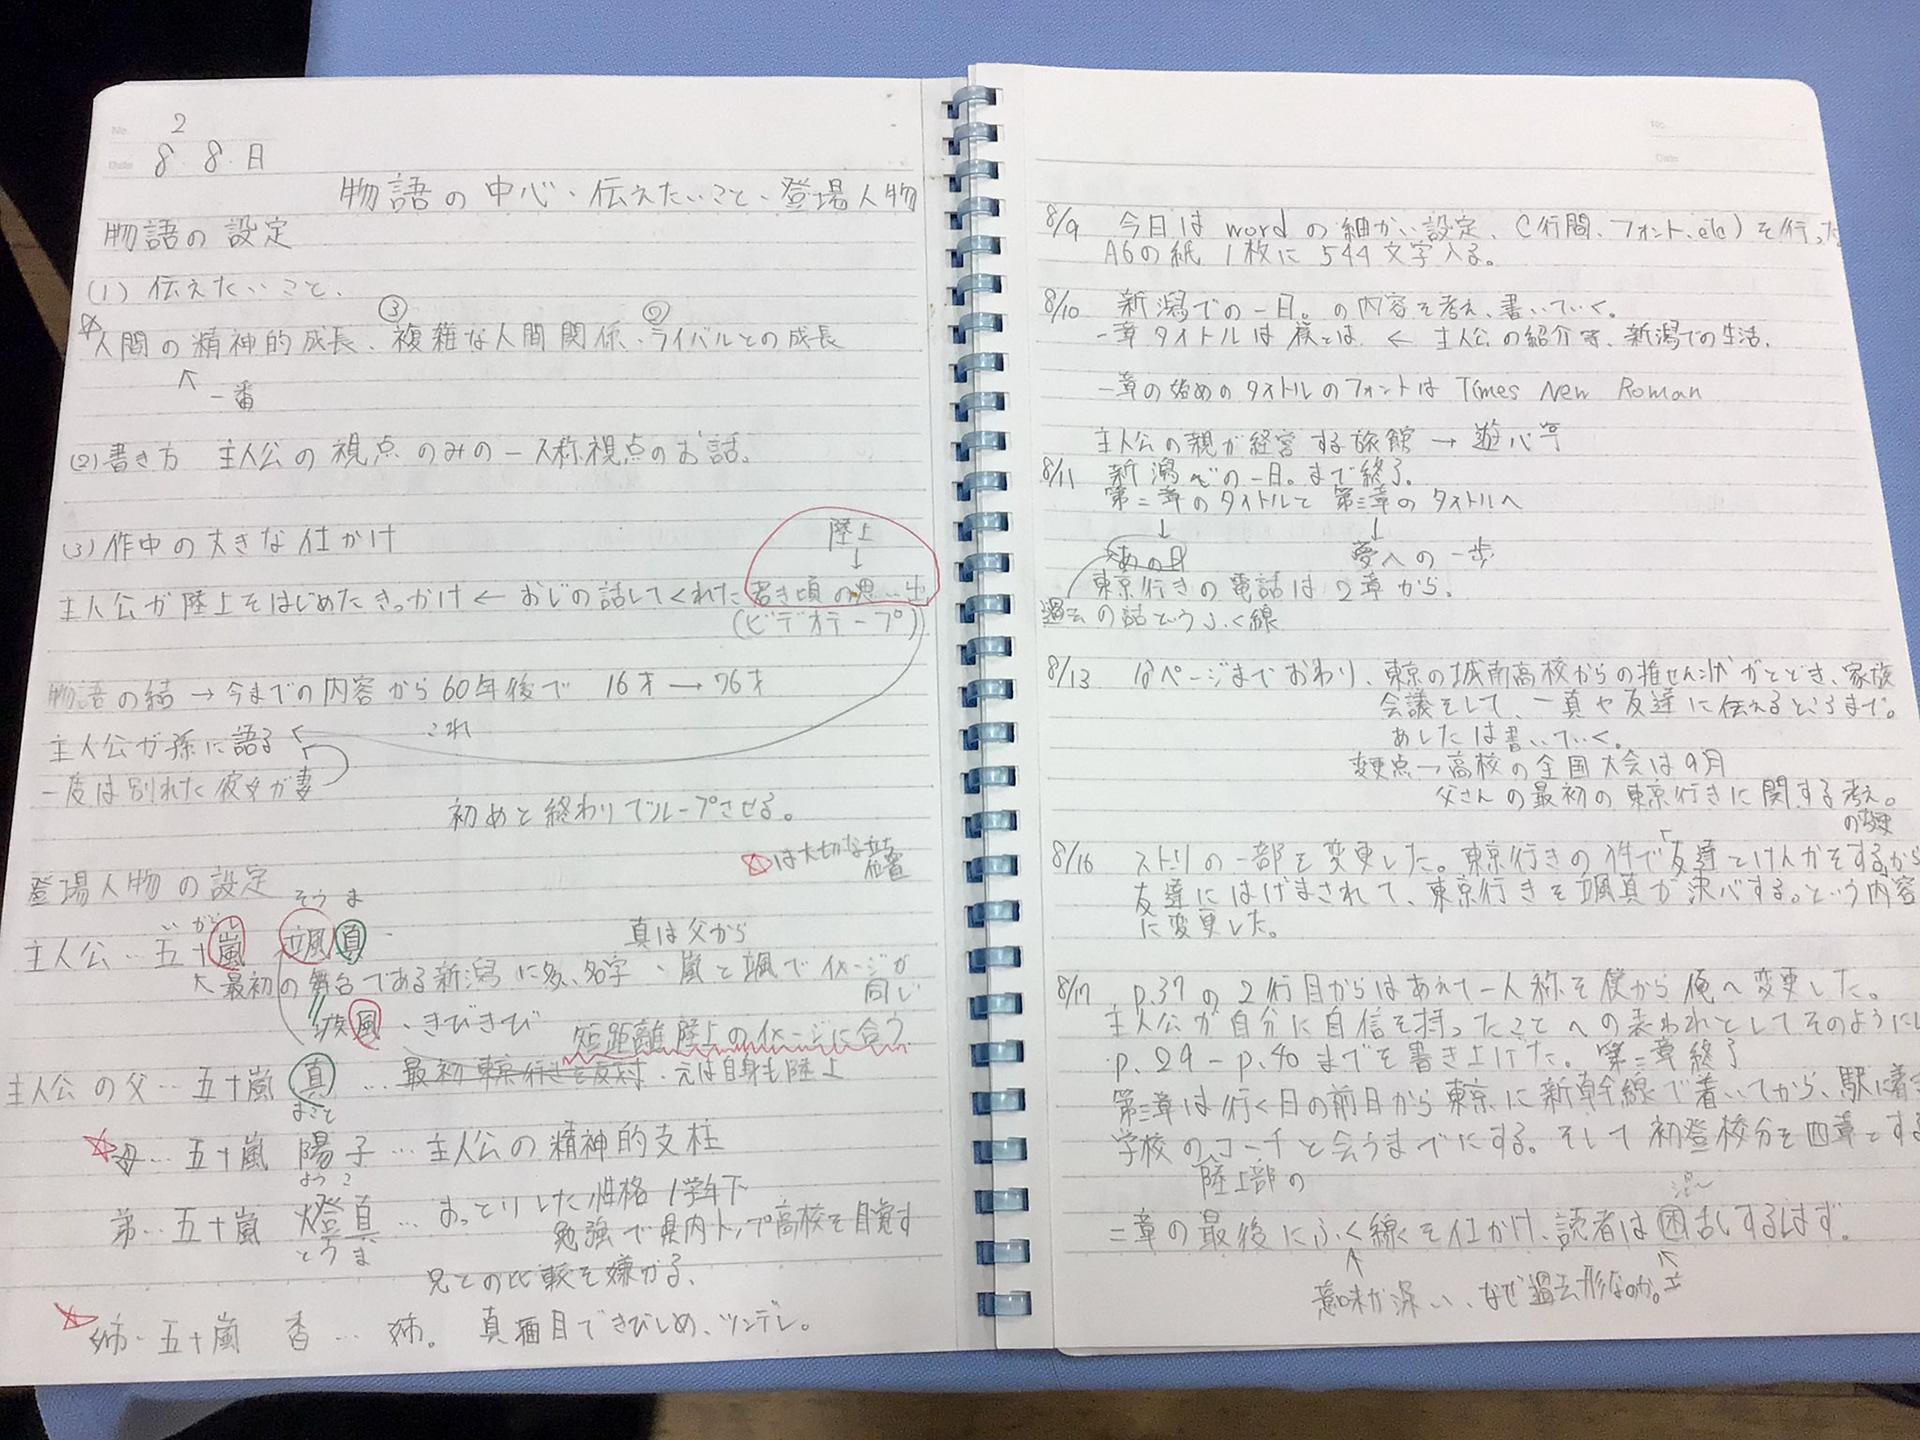 No. 2
Date 8・8・日
物語の中心・伝えたいこと・登場人物
物語の設定
(1) 伝えたいこと、
③ ②
☆人間の精神的成長、複雑な人間関係、ライバルとの成長
↖ 一番
(2) 書き方 主人公の視点のみの一人称視点のお話。
(3) 作中の大きな仕かけ
陸上
↓
主人公が陸上をはじめたきっかけ ← おじの話してくれた若き頃の思い出
(ビデオテープ)
物語の結 → 今までの内容から60年後で 16才 → 76才
主人公が孫に語る これ
一度は別れた彼女が妻
初めと終わりでループさせる。
☆は大切な立ち位置
登場人物の設定
いがらし そうま
主人公…五十嵐 颯真
真は父から
↖最初の舞台である新潟に多い名字・嵐と颯でイメージが同じ
疾風・きびきび 短距離陸上のイメージに合う
主人公の父…五十嵐 真 … 最初東京行きを反対・元は自身も陸上
まこと
☆母…五十嵐 陽子…主人公の精神的支柱
ようこ
弟…五十嵐 燈真…おっとりした性格 1学年下
とうま 勉強で県内トップ高校を目覚す
兄との比較を嫌がる、
☆姉…五十嵐 香…姉。真面目できびしめ、ツンデレ。
No.
Date
8/9 今日はwordの細かい設定、(行間、フォント、etc)を行った
A6の紙1枚に544文字入る。
8/10 新潟での一日。の内容を考え、書いていく。
一章タイトルは 僕とは ← 主人公の紹介等、新潟での生活、
一章の始めのタイトルのフォントは Times New Roman
主人公の親が経営する旅館 → 遊心亭
8/11 新潟での一日。まで終了。
第二章のタイトルと第三章のタイトルへ
↓ ↓
あの日 夢への一歩
東京行きの電話は2章から、
過去の話というふく線
8/13 ページまでおわり、東京の城南高校からの推せん状がとどき、家族
会議をして、一真や友達に伝えるところまで。
あしたは書いていく。
変更点→高校の全国大会は9月
父さんの最初の東京行きに関する考え。
の変更
8/16 ストーリの一部を変更した。東京行きの件で友達とけんかをするから
友達にはげまされて、東京行きを颯真が決心する。という内容
に変更した。
8/17 p.37の2行目からはあえて一人称を僕から俺へ変更した。
主人公が自分に自信を持ったことへの表われとしてそのように
p.29-p.40までを書き上げた。第二章終了
第三章は行く日の前日から東京に新幹線で着いてから、駅に着き
学校のコーチと会うまでにする。そして初登校分を四章とする
陸上部の
二章の最後にふく線を仕かけ、読者は困乱するはず。
混
↑
意味が深い、なぜ過去形なのか。